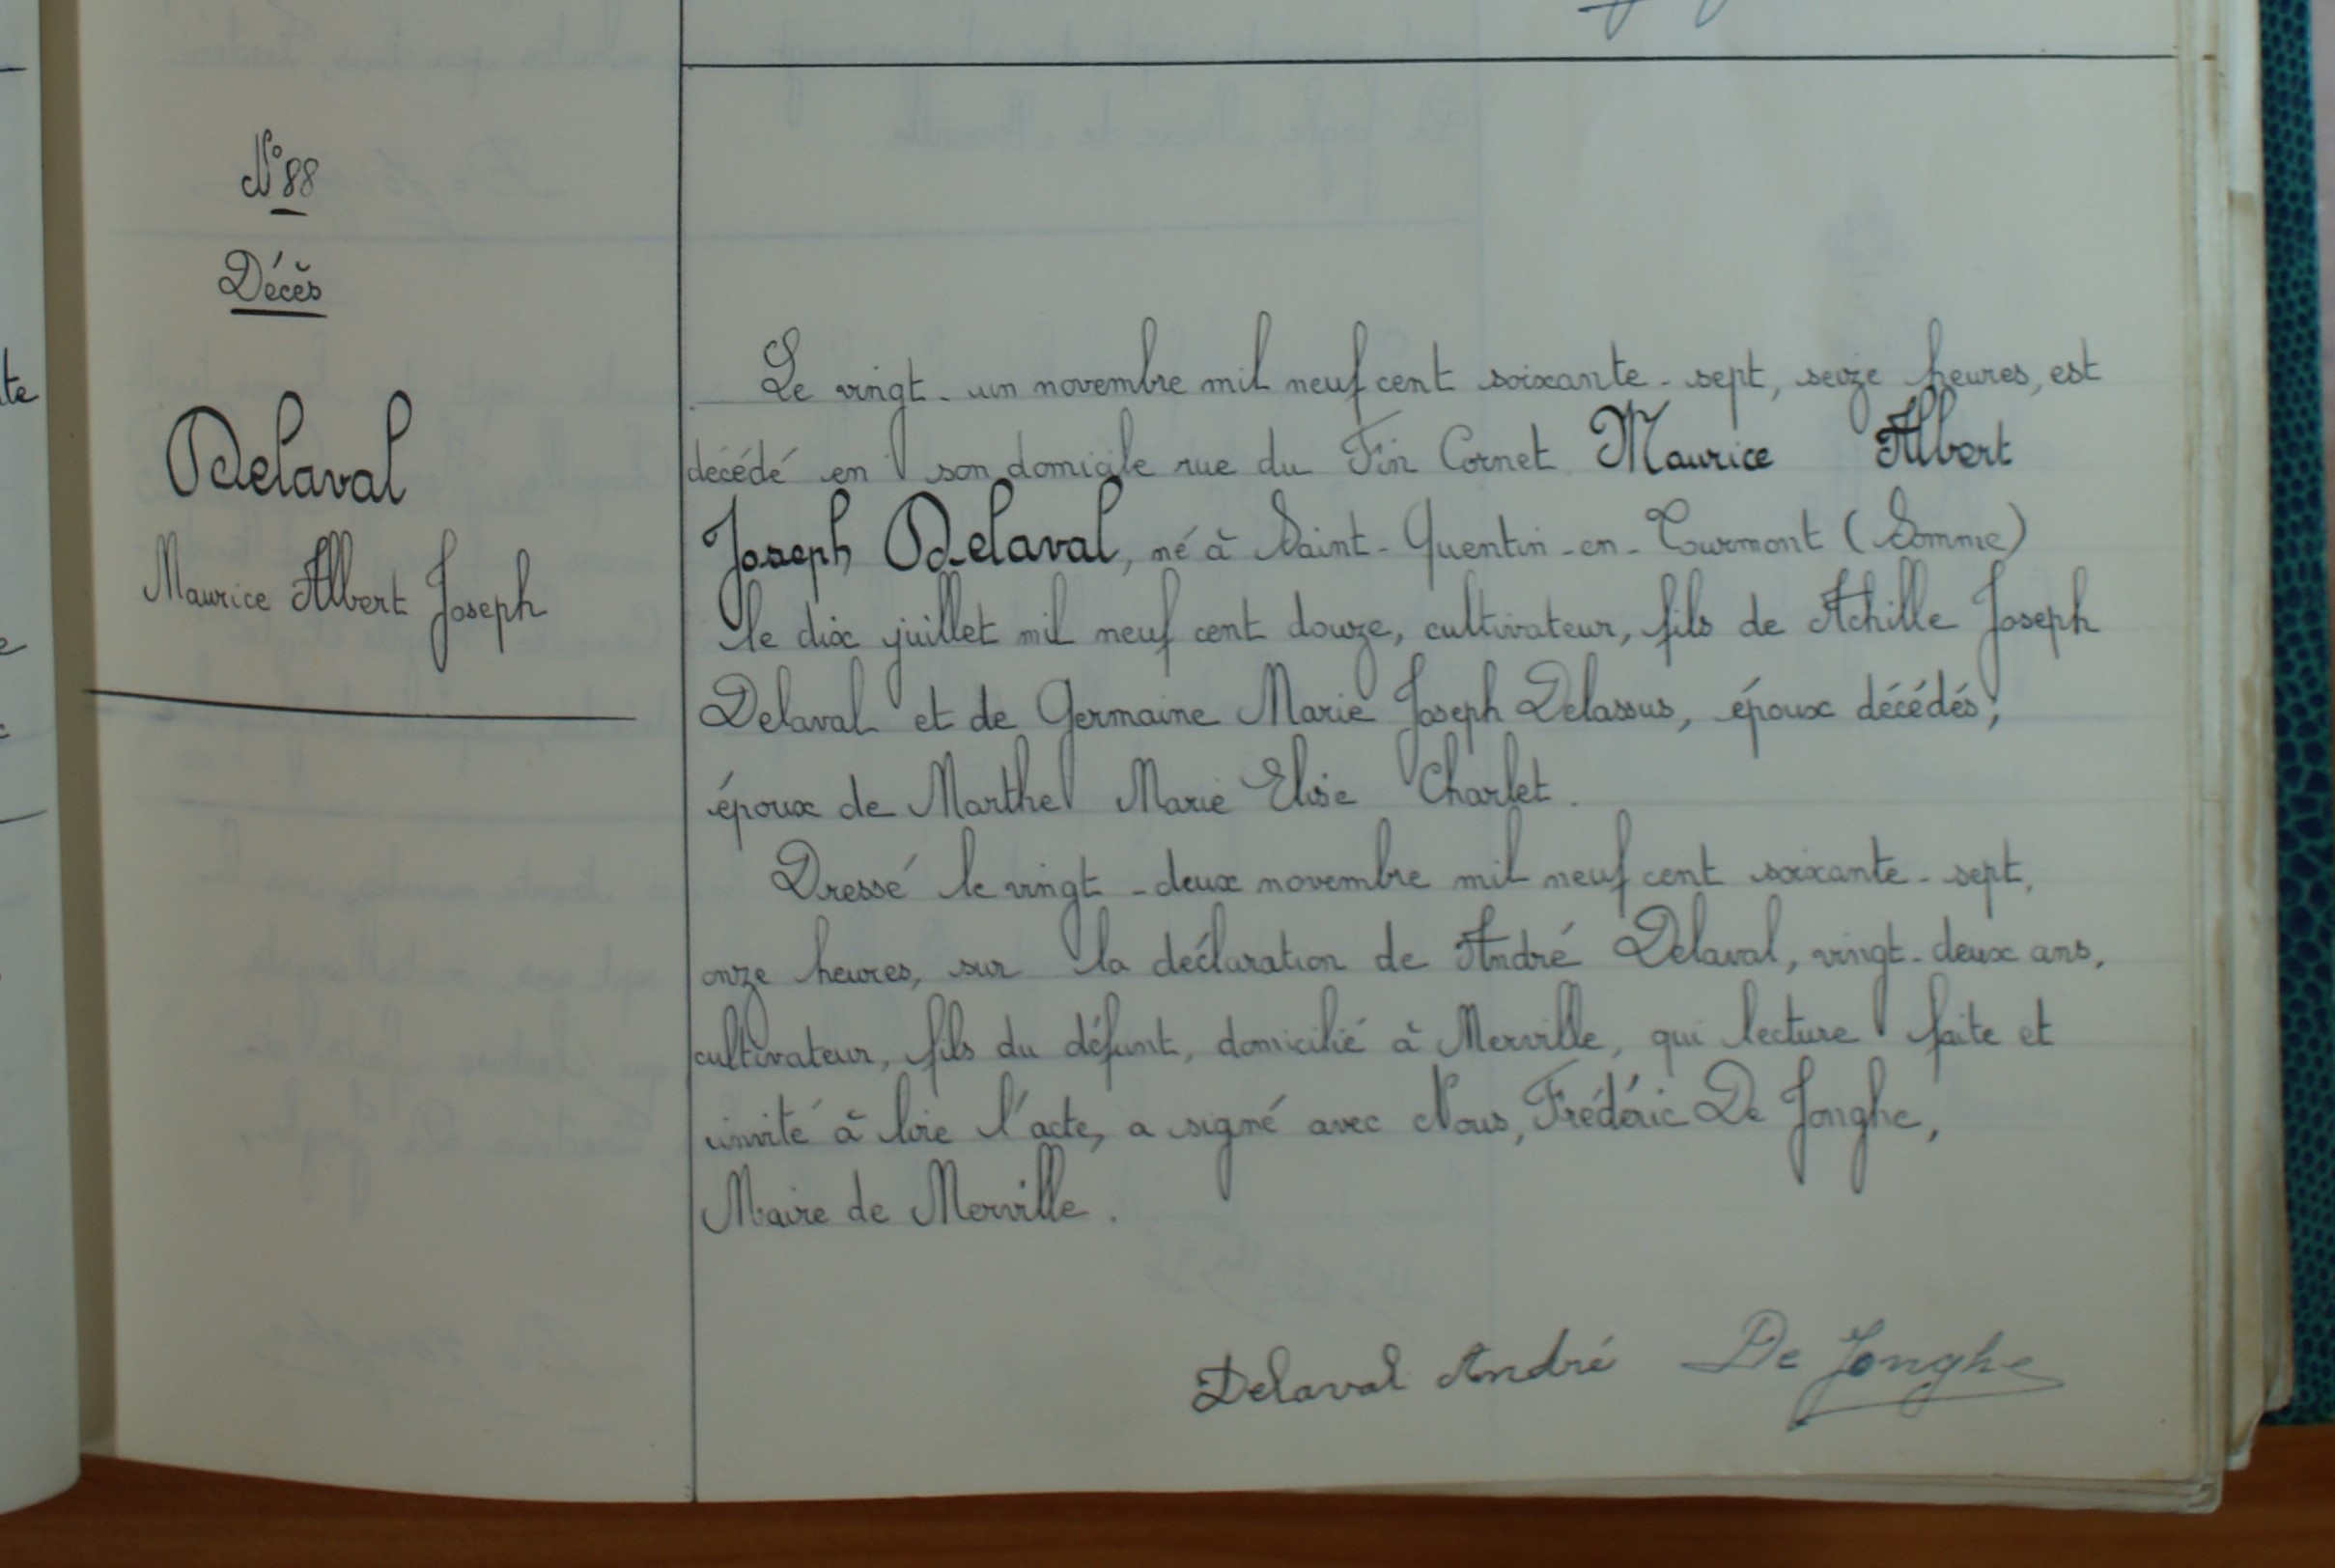 N° 88
Décès
Delaval
Maurice Albert Joseph
Le vingt-un novembre mil neuf cent soixante-sept, seize heures, est
décédé en son domicile rue du Fin Cornet Maurice Albert
Joseph Delaval, né à Saint-Quentin-en-Tourmont (Somme)
le dix juillet mil neuf cent douze, cultivateur, fils de Achille Joseph
Delaval et de Germaine Marie Joseph Delassus, époux décédés;
époux de Marthe Marie Elise Charlet.
Dressé le vingt-deux novembre mil neuf cent soixante-sept,
onze heures, sur la déclaration de André Delaval, vingt-deux ans,
cultivateur, fils du défunt, domicilié à Merville, qui lecture faite et
invité à lire l'acte, a signé avec Nous, Frédéric De Jonghe,
Maire de Merville.
Delaval André De Jonghe